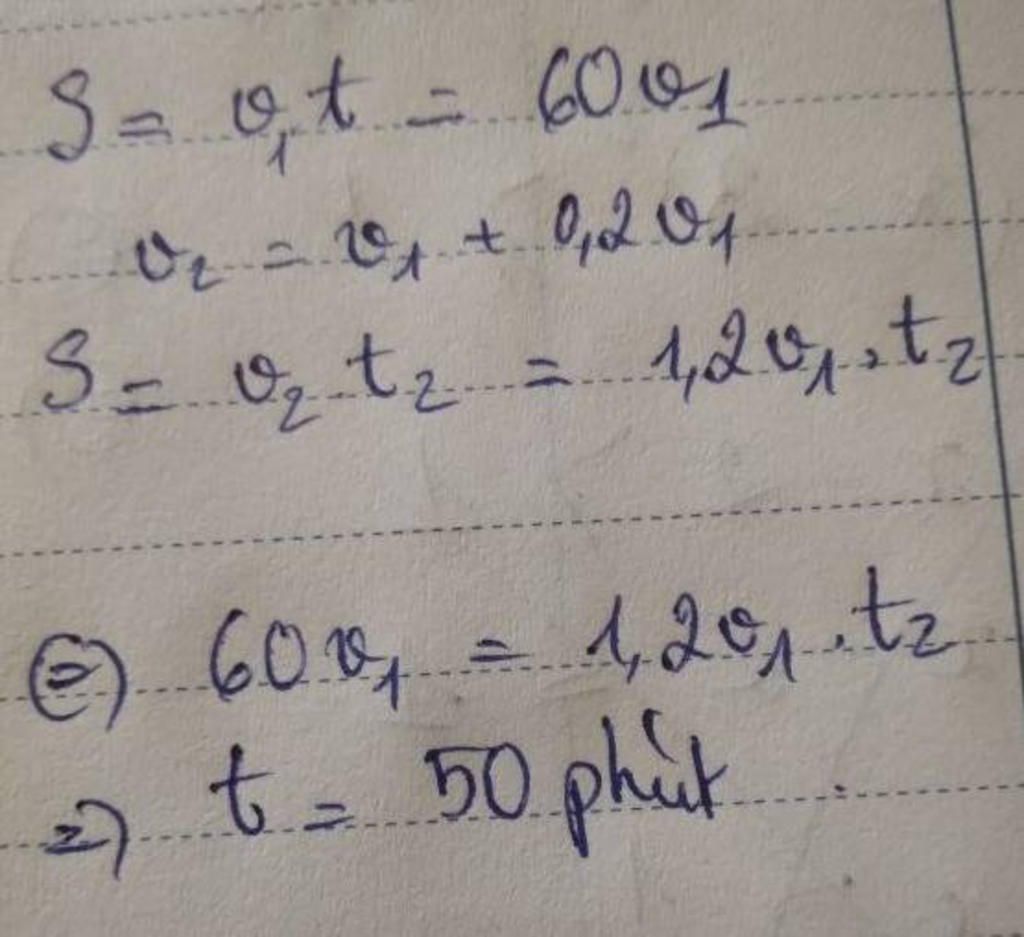 S = v₁t = 60v1
v₂ = v₁ + 0,2v₁
S = v₂t₂ = 1,2v₁.t₂
(=) 60v₁ = 1,2v₁.t₂
=) t = 50 phút